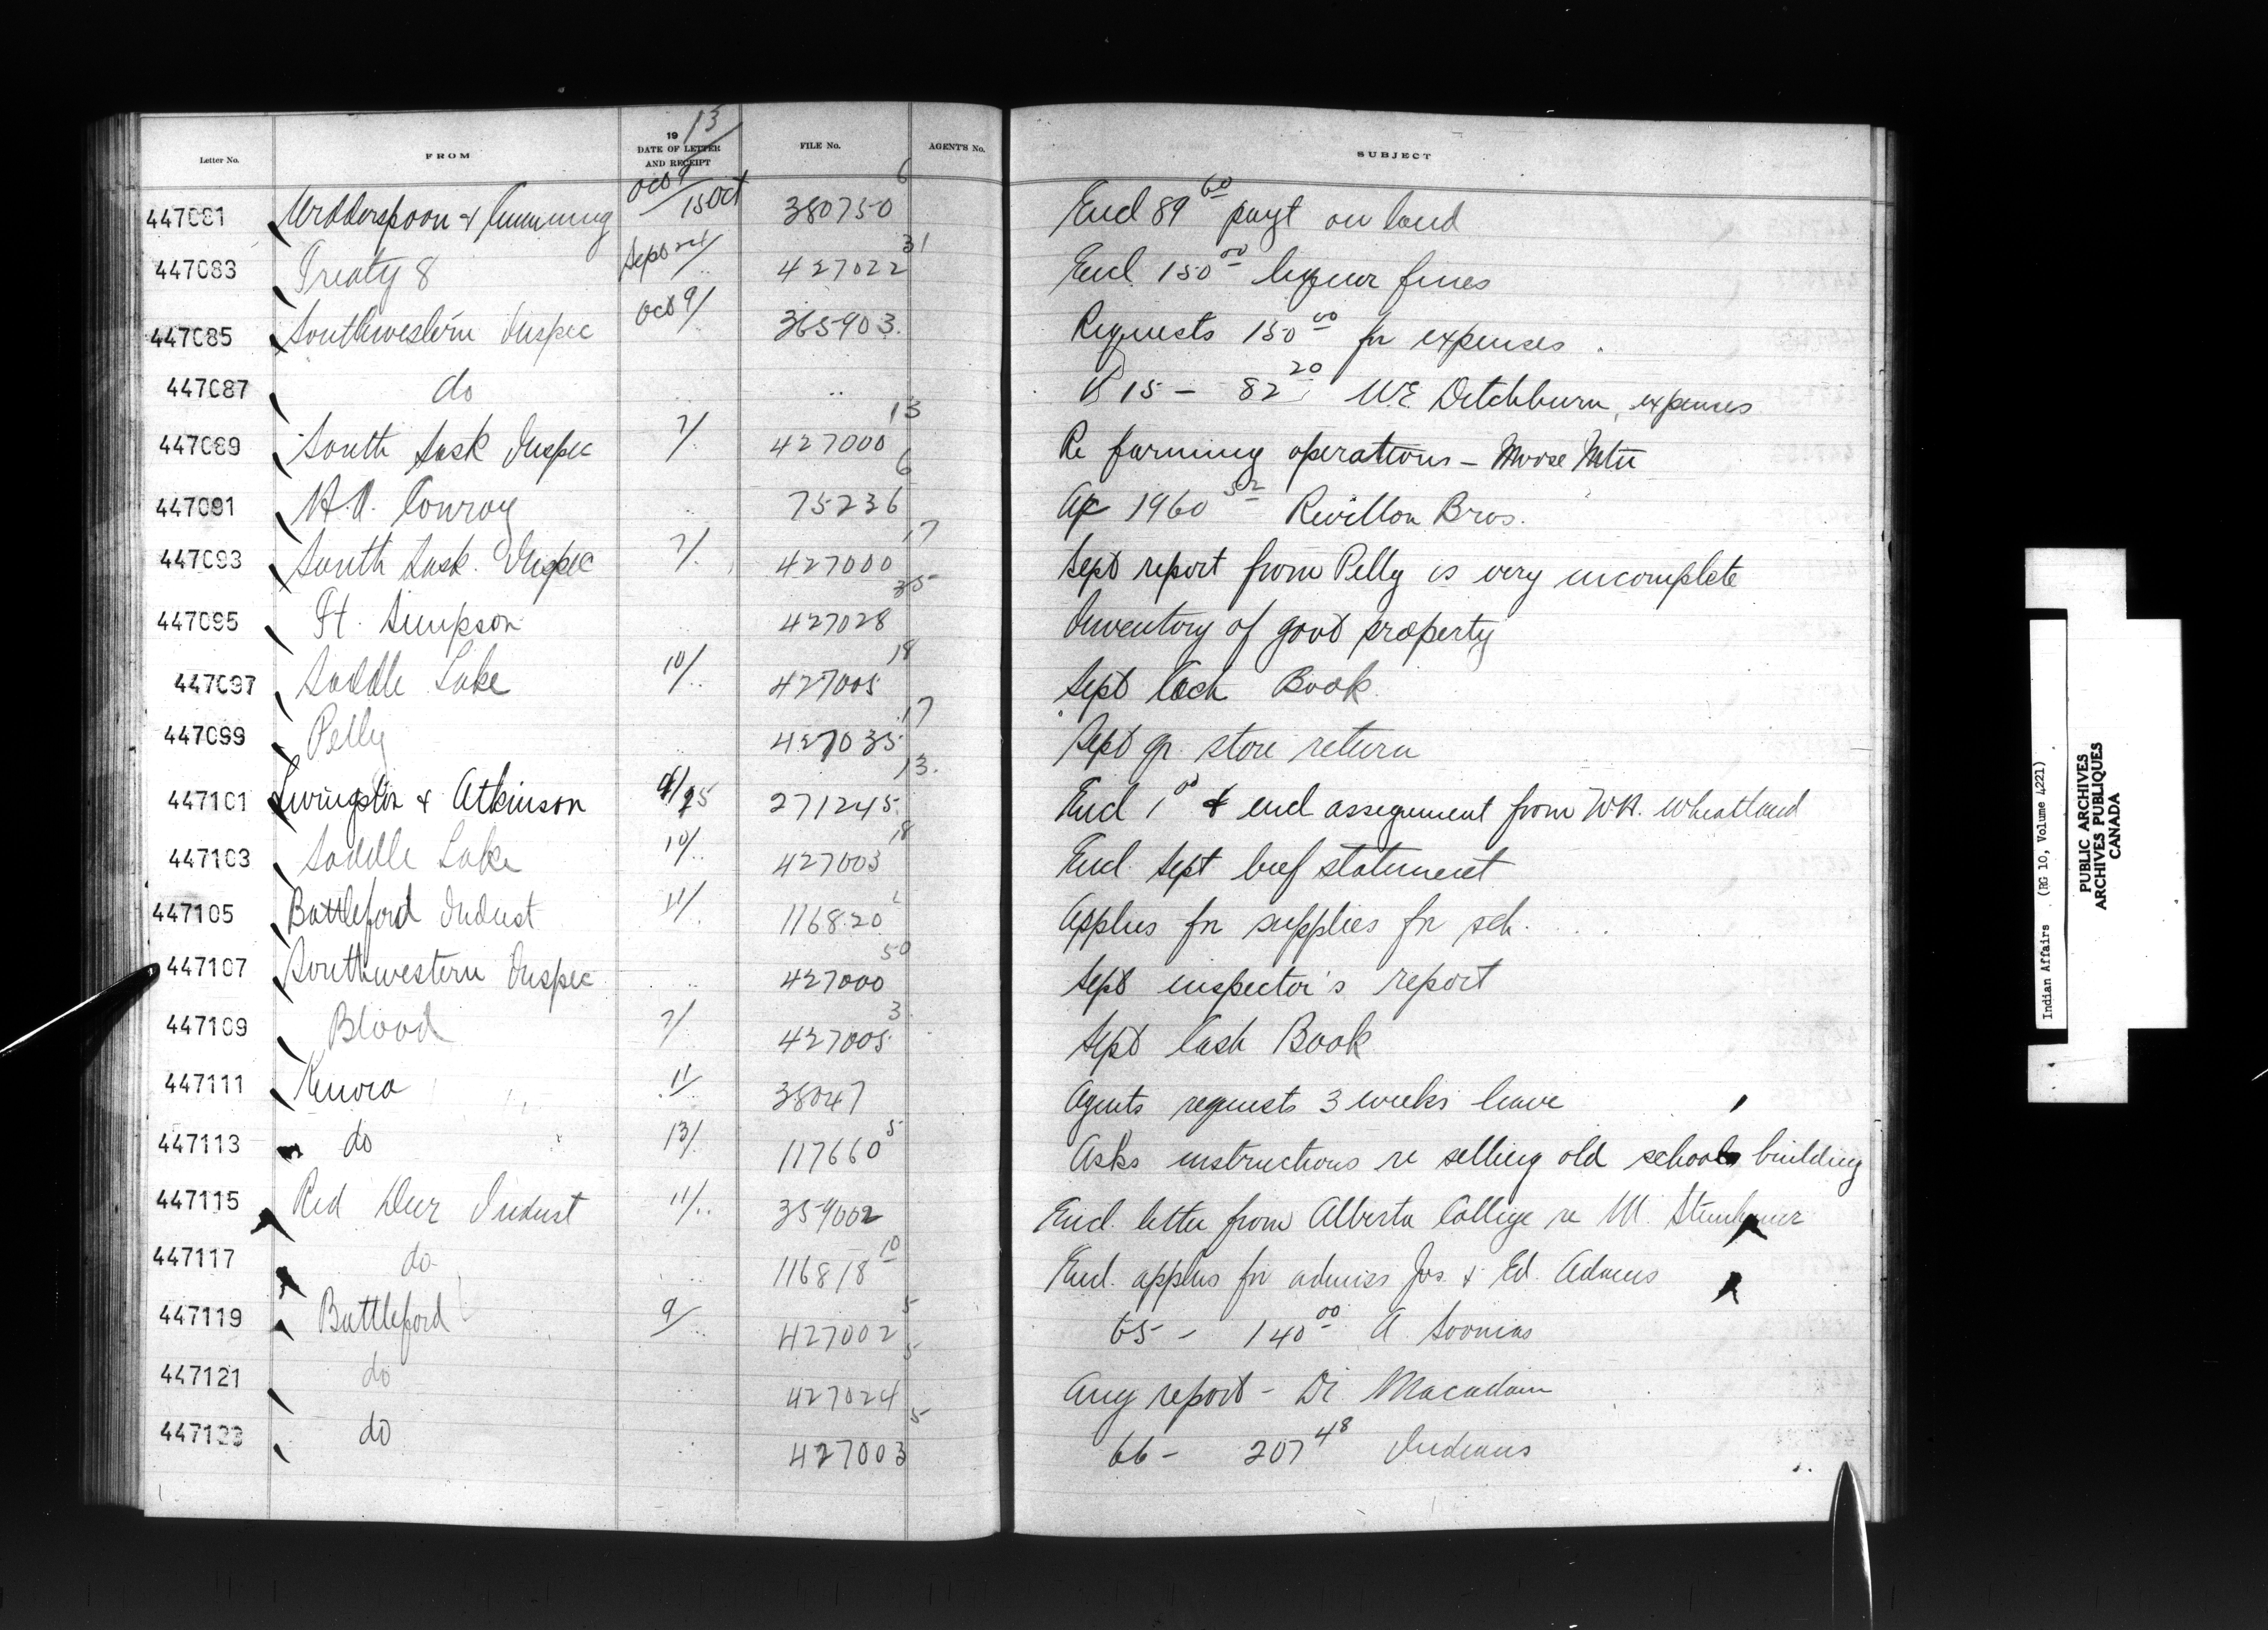 Letter No. FROM 19/13 DATE OF LETTER AND RECEIPT FILE No. AGENT'S No. SUBJECT
447081 & Cumming Oct 9/15 Oct 380750 6 Encl 89 60 payt on land
447083 Treaty 8 Sept 24/ .. 427022 31 Encl. 150 00 liquor fines
447085 Southwestern Inspec Oct 9/ .. 365903. Requests 150 00 for expenses.
447087 do .. .. 15 - 82 20 W.E. Ditchburn, expenses
447089 South Sask Inspec 7/. 427000 13 Re farming operations - Moose Mtn
447091 H.A. Conroy .. 75236 6 Ac 1960 52 Revillon Bros.
447093 South Sask. Inspec 7/. 427000 17 Sept report from Pelly is very incomplete
447095 Ft. Simpson 427028 35 Inventory of govt property
447097 Saddle Lake 10/.. 427005 18 Sept Cash Book.
447099 Pelly .. 427035 17 Sept qr. store return
447101 Livingston & Atkinson 271245 13. Encl 1 00 & encl assignment from W.H. Wheatland
447103 Saddle Lake 10/.. 427003 18 Encl. Sept beef statement
447105 Battleford Indust 11/. 116820 Applies for supplies for sch.
447107 Southwestern Inspec .. 427000 50 Sept inspector's report
447109 Blood 7/ 427005 3 Sept Cash Book
447111 Kenora 11/.. 38047 Agents requests 3 weeks leave
447113 do 13/. 117660 5 Asks instructions re selling old school building
447115 Red Deer Indust 11/.. 359002 Encl. letter from Alberta College re M. Steinhauer
447117 do .. 116818 10 Encl. applns for admiss Jos. & Ed. Adams
447119 Battleford 9/.. 427002 5 65 - 140 00 A. Soonias
447121 do .. 427024 5 Aug report - Dr. Macadam
447123 do .. 427003 5 66 - 207 48 Indians
Indian Affairs (RG 10, Volume 4221)
PUBLIC ARCHIVES
ARCHIVES PUBLIQUES
CANADA